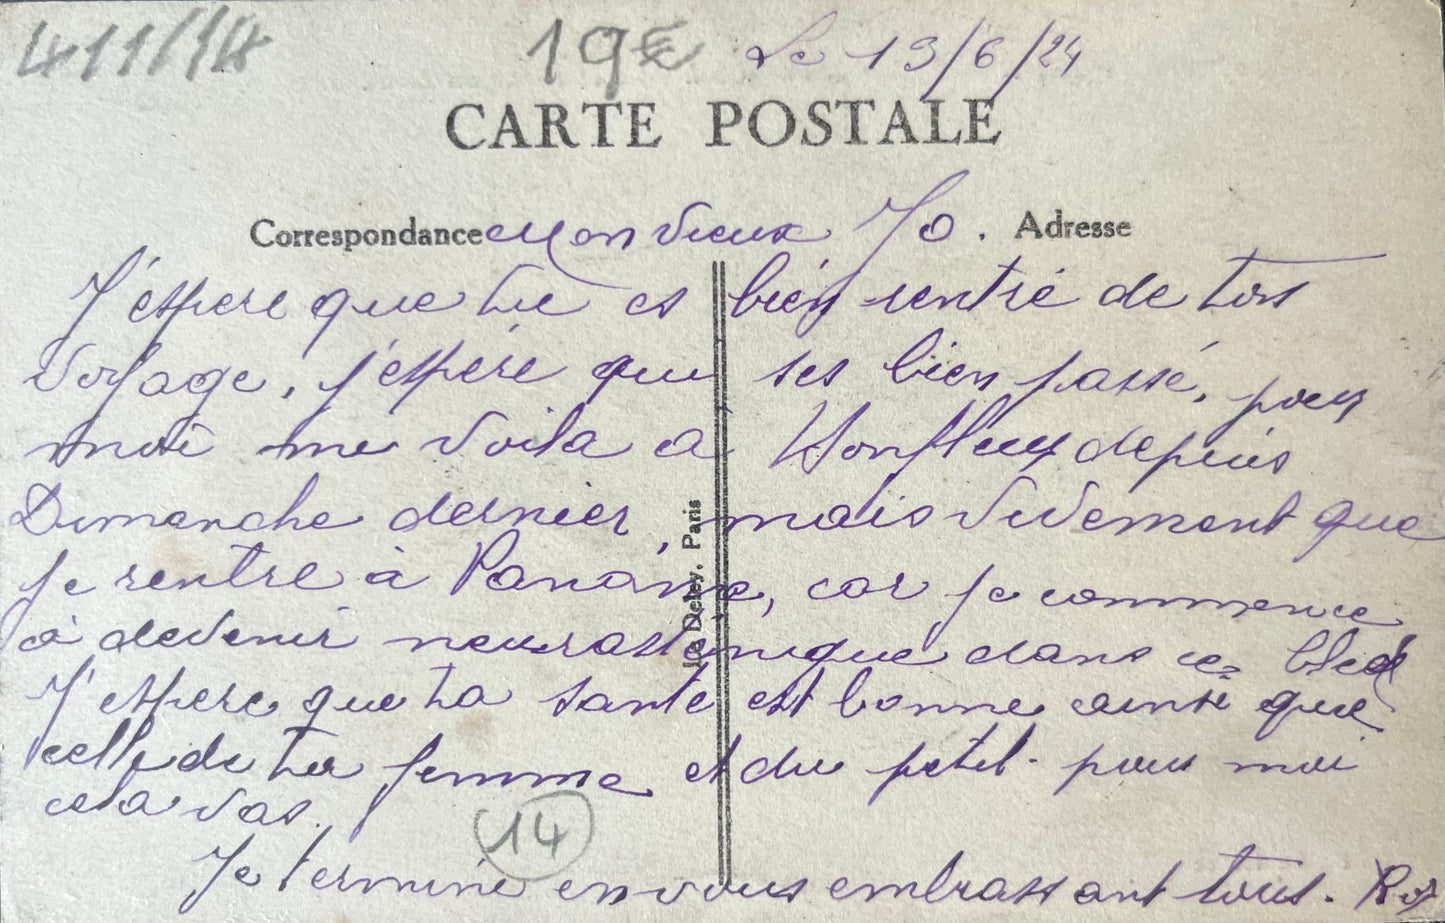 411/14
19€ Le 13/6/24
CARTE POSTALE
Correspondance Mon vieux Jo. Adresse
J'éspere que tu es bien rentré de ton
voyage, j'éspére que ses bien passé, pour
moi me voila a Honfleur depuis
Dimanche dernier, mais vivement que
je rentre à Paname, car je commence
a devenir neurasténique dans ce bled
J'éspere que ta santé est bonne ainsi que
celle de ta femme et du petit. pour moi
cela vas.
14
Je termine en vous embrassant tous.
Le Deley, Paris